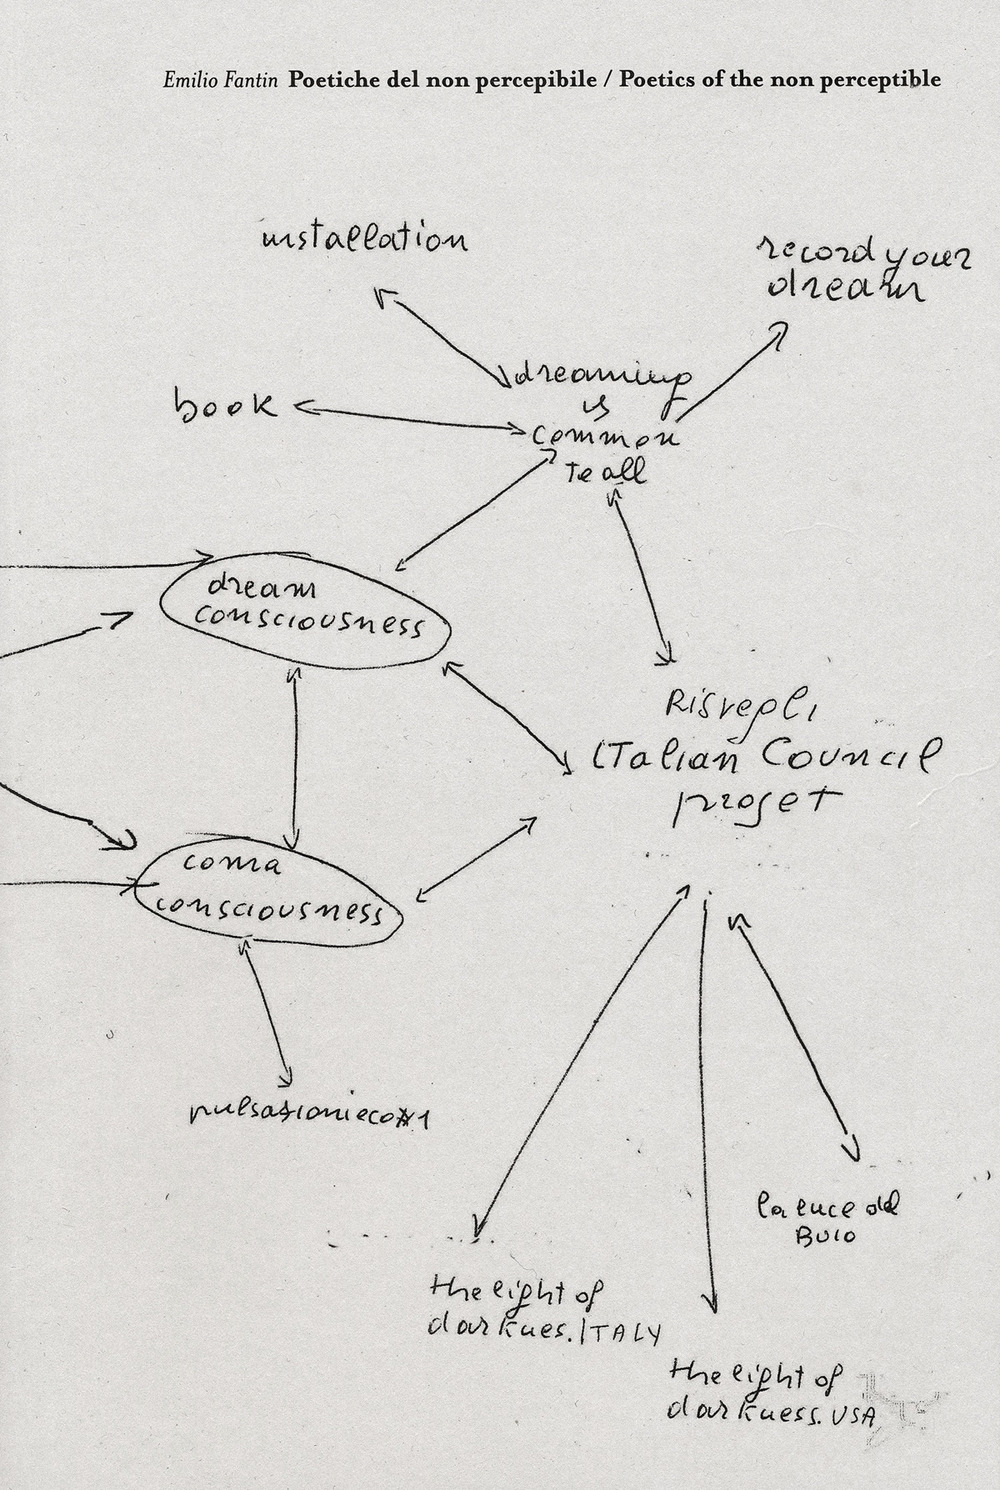 Emilio Fantin Poetiche del non percepibile / Poetics of the non perceptible
installation
record your
dream
dreaming
is
common
to all
book
dream
consciousness
Risvegli
ITalian Council
proget
coma
consciousness
pulsazionieco#1
la luce del
BUIO
the light of
darknes. ITALY
the light of
darkness. USA